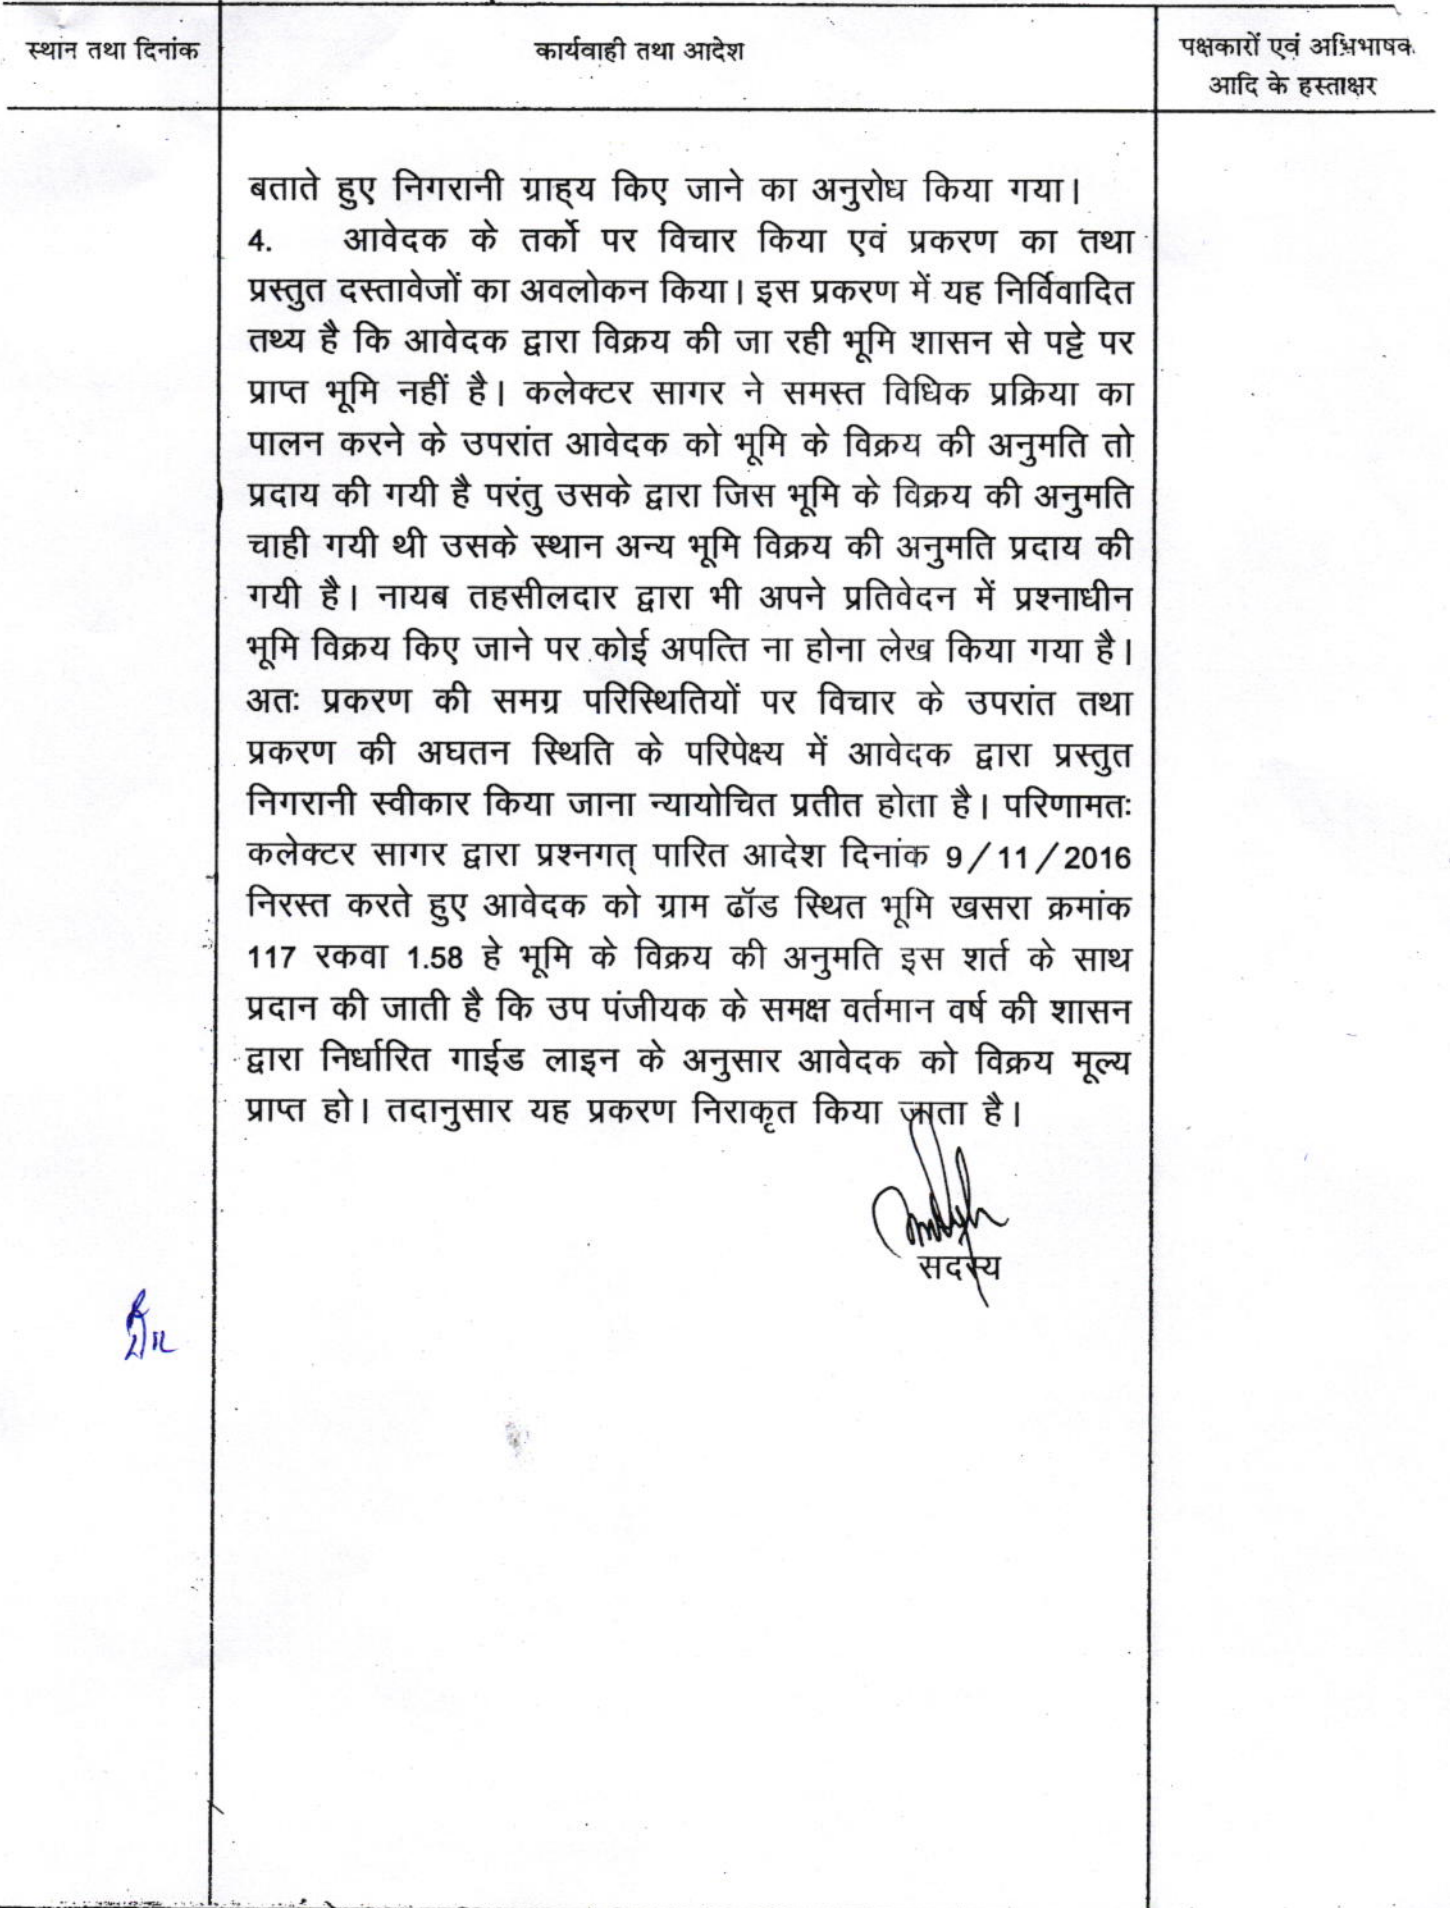 स्थान तथा दिनांक
कार्यवाही तथा आदेश
पक्षकारों एवं अभिभाषक
आदि के हस्ताक्षर
बताते हुए निगरानी ग्राह्य किए जाने का अनुरोध किया गया।
4. आवेदक के तर्को पर विचार किया एवं प्रकरण का तथा
प्रस्तुत दस्तावेजों का अवलोकन किया। इस प्रकरण में यह निर्विवादित
तथ्य है कि आवेदक द्वारा विक्रय की जा रही भूमि शासन से पट्टे पर
प्राप्त भूमि नहीं है। कलेक्टर सागर ने समस्त विधिक प्रक्रिया का
पालन करने के उपरांत आवेदक को भूमि के विक्रय की अनुमति तो
प्रदाय की गयी है परंतु उसके द्वारा जिस भूमि के विक्रय की अनुमति
चाही गयी थी उसके स्थान अन्य भूमि विक्रय की अनुमति प्रदाय की
गयी है। नायब तहसीलदार द्वारा भी अपने प्रतिवेदन में प्रश्नाधीन
भूमि विक्रय किए जाने पर कोई अपत्ति ना होना लेख किया गया है।
अतः प्रकरण की समग्र परिस्थितियों पर विचार के उपरांत तथा
प्रकरण की अघतन स्थिति के परिपेक्ष्य में आवेदक द्वारा प्रस्तुत
निगरानी स्वीकार किया जाना न्यायोचित प्रतीत होता है। परिणामतः
कलेक्टर सागर द्वारा प्रश्नगत् पारित आदेश दिनांक 9/11/2016
निरस्त करते हुए आवेदक को ग्राम ढॉड स्थित भूमि खसरा क्रमांक
117 रकवा 1.58 हे भूमि के विक्रय की अनुमति इस शर्त के साथ
प्रदान की जाती है कि उप पंजीयक के समक्ष वर्तमान वर्ष की शासन
द्वारा निर्धारित गाईड लाइन के अनुसार आवेदक को विक्रय मूल्य
प्राप्त हो। तदानुसार यह प्रकरण निराकृत किया जाता है।
सदस्य